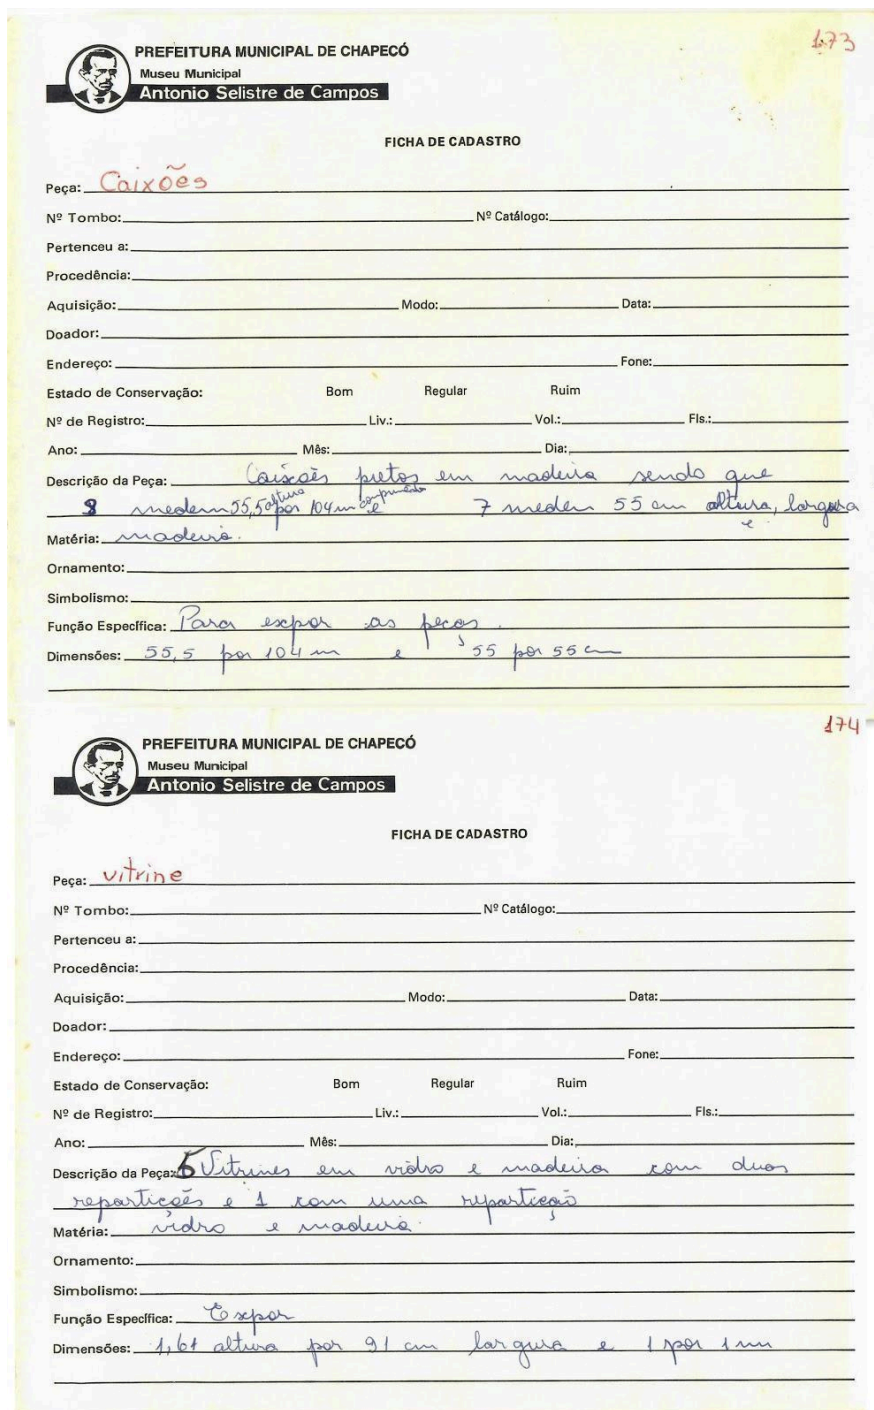 173
PREFEITURA MUNICIPAL DE CHAPECÓ
Museu Municipal
Antonio Selistre de Campos
FICHA DE CADASTRO
Peça: Caixões
Nº Tombo: Nº Catálogo:
Pertenceu a:
Procedência:
Aquisição: Modo: Data:
Doador:
Endereço: Fone:
Estado de Conservação: Bom Regular Ruim
Nº de Registro: Liv.: Vol.: Fls.:
Ano: Mês: Dia:
Descrição da Peça: Caixões pretos em madeira sendo que
8 medem 55,5 altura por 104 m comprimento e 7 medem 55 cm altura, largura
e
Matéria: madeira.
Ornamento:
Simbolismo:
Função Específica: Para expor as peças.
Dimensões: 55,5 por 104 m e 55 por 55 cm
174
PREFEITURA MUNICIPAL DE CHAPECÓ
Museu Municipal
Antonio Selistre de Campos
FICHA DE CADASTRO
Peça: vitrine
Nº Tombo: Nº Catálogo:
Pertenceu a:
Procedência:
Aquisição: Modo: Data:
Doador:
Endereço: Fone:
Estado de Conservação: Bom Regular Ruim
Nº de Registro: Liv.: Vol.: Fls.:
Ano: Mês: Dia:
Descrição da Peça: 5 Vitrines em vidro e madeira com duas
repartições e 1 com uma repartição
Matéria: vidro e madeira.
Ornamento:
Simbolismo:
Função Específica: Expor
Dimensões: 1,61 altura por 91 cm largura e 1 por 1 m